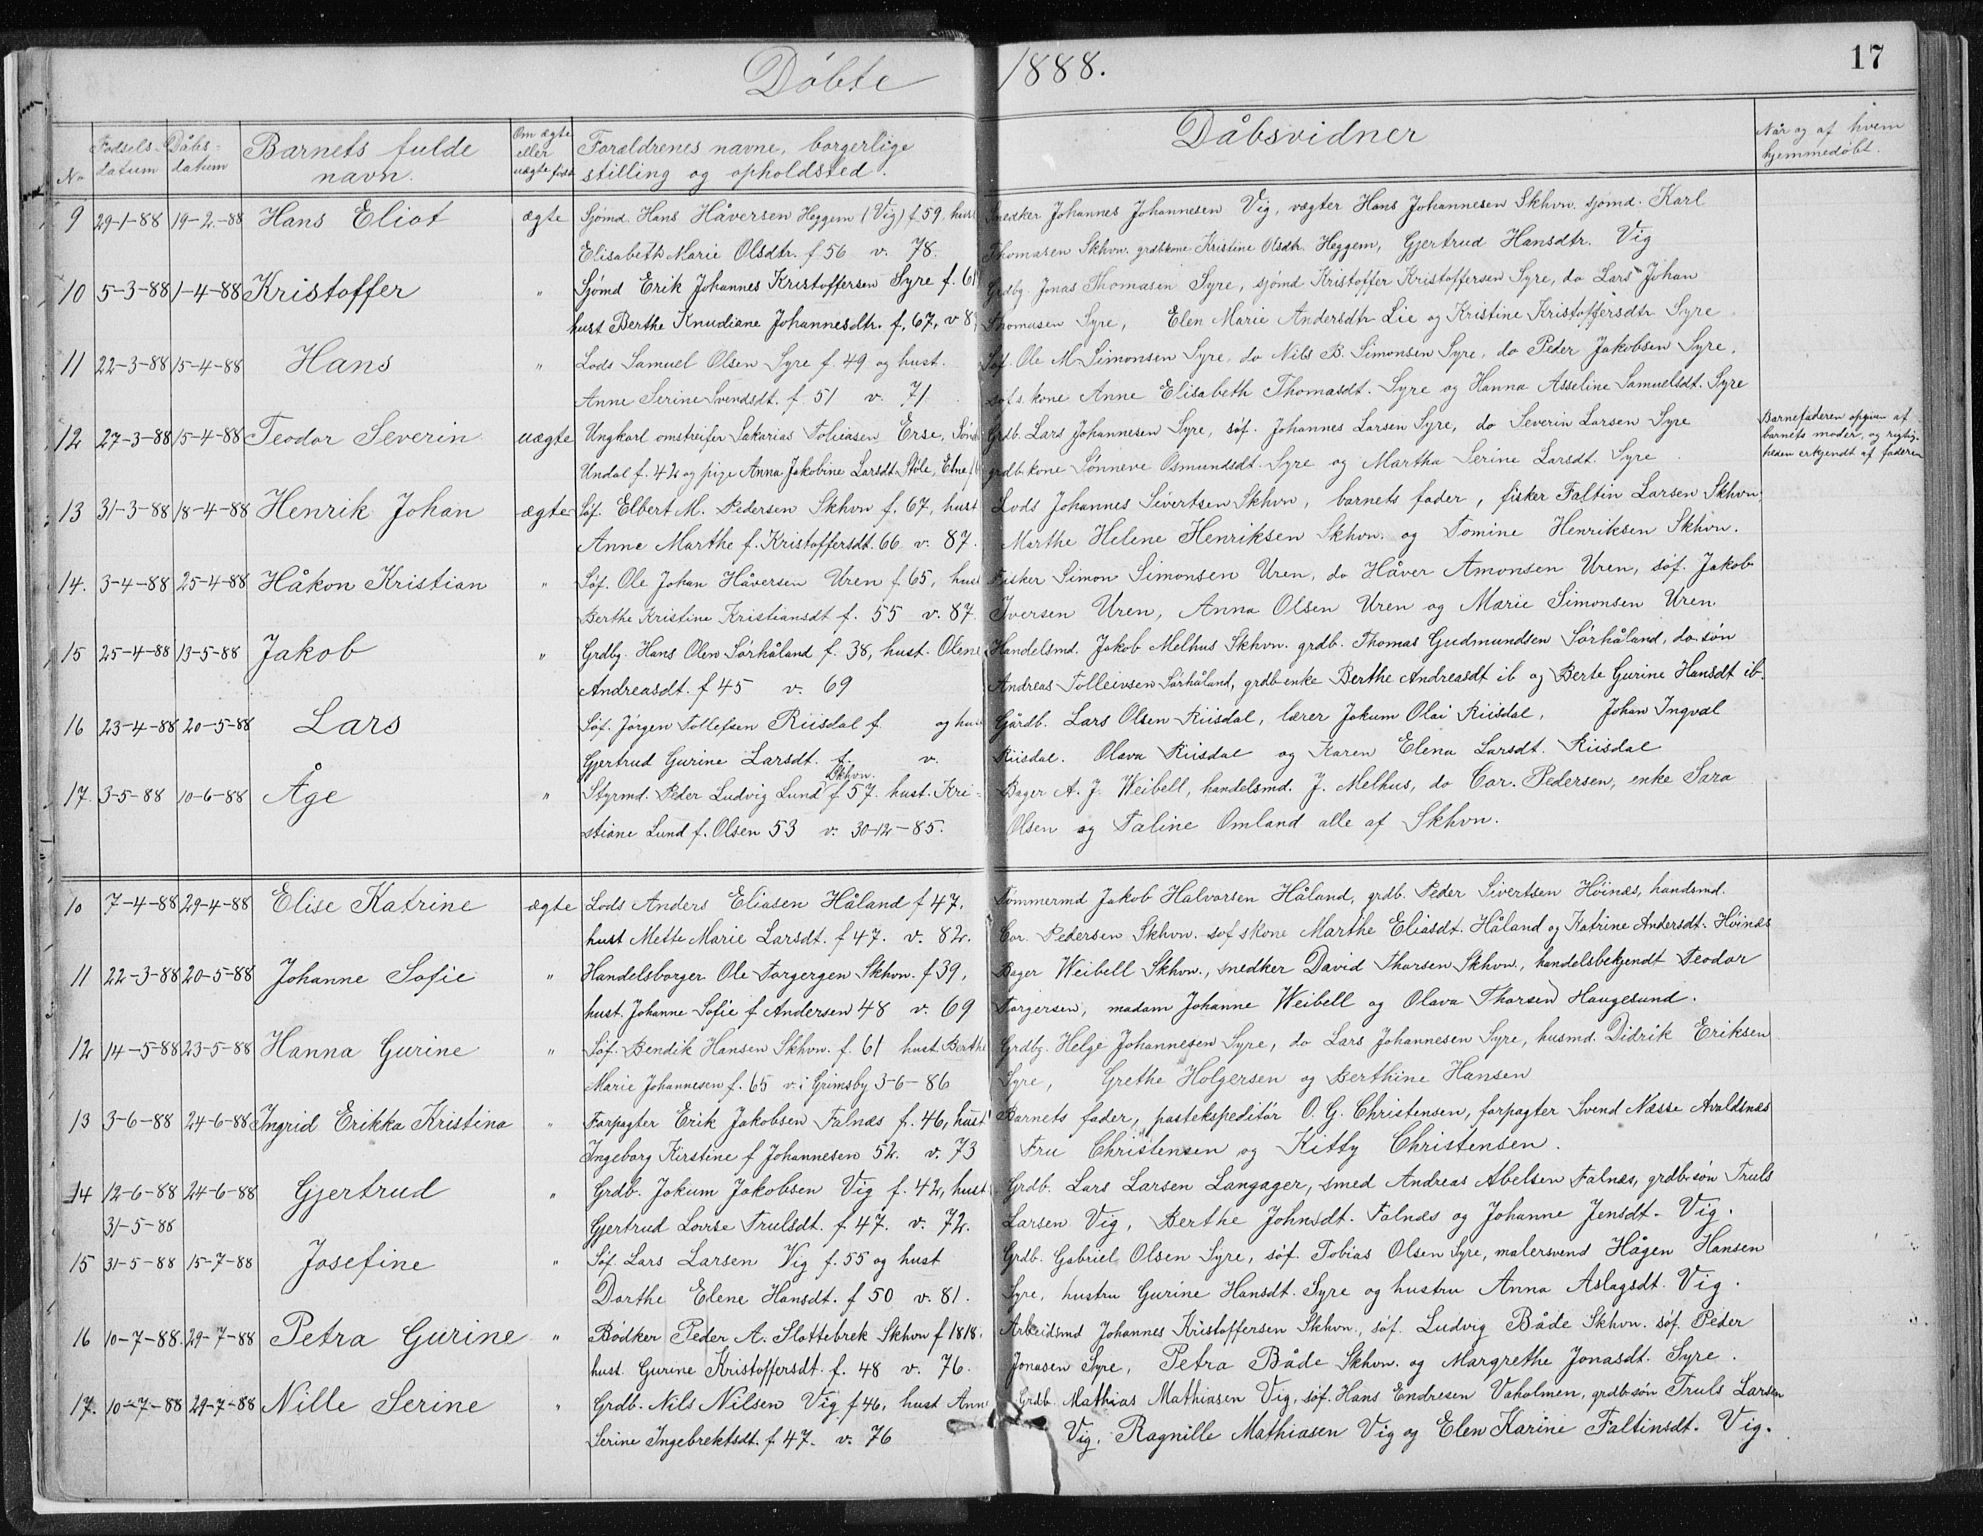 Døbte 1888.
17
No
Fødsels-datum
Dåbs-datum
Barnets fulde navn.
Om ægte eller uægte født
Forældrenes navne, borgerlige stilling og opholdsted.
Dåbsvidner
Når og af hvem hjemmedøbt.
9 29-1-88 19-2-88 Hans Eliot ægte Sjømd. Hans Håversen Heggem (Vig) f 59, hust Snedker Johannes Johannesen Vig, vægter Hans Johannesen Skhvn. sjømd. Karl
Elisabeth Marie Olsdtr. f 56 v. 78. Thomasen Skhvn. grdbkone Kristine Olsdtr. Heggem, Gjertrud Hansdtr. Vig
10 5-3-88 1-4-88 Kristoffer " Sjømd Erik Johannes Kristoffersen Syre f. 61 Grdbg. Jonas Thomasen Syre, sjømd Kristoffer Kristoffersen Syre, do Lars Johan
hust Berthe Knudiane Johannesdtr. f. 67, v 8 Thomasen Syre, Elen Marie Andersdtr Lie og Kristine Kristoffersdtr Syre
11 22-3-88 15-4-88 Hans " Lods Samuel Olsen Syre f. 49 og hust. Søf. Ole M Simonsen Syre, do Nils B. Simonsen Syre, do Peder Jakobsen Syre,
Anne Serine Svendsdt. f. 51 v. 71 søf s. kone Anne Elisabeth Thomasdt. Syre og Hanna Asseline Samuelsdt. Syre
12 27-3-88 15-4-88 Teodor Severin uægte Ungkarl omstreifer Sakarias Toliasen Erse, Sønd Grdb. Lars Johannesen Syre, søf. Johannes Larsen Syre, do Severin Larsen Syre Barnefaderen opgiven af
Undal f. 42 og pige Anna Jakobine Larsdt. Støle, Etne grdb. kone Sønneve Osmundsdt. Syre og Martha Serine Larsdt. Syre barnets moder, og rigtig-
heden erkjendt af faderen
13 31-3-88 18-4-88 Henrik Johan ægte Søf. Elbert M. Pedersen Skhvn f. 67, hust Lods Johannes Sivertsen Skhvn, barnets fader, fisker Faltin Larsen Skhvn,
Anne Marthe f. Kristoffersdt. 66 v. 87. Marthe Helene Henriksen Skhvn. og Tomine Henriksen Skhvn.
14. 3-4-88 25-4-88 Håkon Kristian " Søf. Ole Johan Håversen Uren f 65, hust Fisker Simon Simonsen Uren, do Håver Amonsen Uren, søf. Jakob
Berthe Kristine Kristiansdt f. 55 v. 87 Iversen Uren, Anna Olsen Uren og Marie Simonsen Uren
15 25-4-88 13-5-88 Jakob " Grdbg. Hans Olsen Sørhåland f. 38, hust. Olene Handelsmd. Jakob Melhus Skhvn. grdb. Thomas Gudmundsen Sørhåland, do søn
Andreasdt. f 45 v. 69 Andreas Tolleivsen Sørhåland, grdb enke Berthe Andreasdt ib og Berte Gurine Hansdt ib.
16 23-4-88 20-5-88 Lars Søf. Jørgen Tollefsen Riisdal f og hust Gårdb. Lars Olsen Riisdal, lærer Jokum Olai Riisdal, Johan Ingval
Gjertrud Gurine Larsdt. f. v. Riisdal. Olava Riisdal og Karen Elena Larsdt. Riisdal
17. 3-5-88 10-6-88 Åge " Styrmd. Peder Ludvig Lund Skhvn. f. 57. hust. Kri- Bager A. J. Weibell, handelsmd. J. Melhus, do Cor. Pedersen, enke Sara
stiane Lund f. Olsen 53 v. 30-12-85. Olsen og Taline Omland alle af Skhvn.
10 7-4-88 29-4-88 Elise Katrine ægte Lods Anders Eliasen Håland f 47, Tømmermd Jakob Halvorsen Håland, grdb. Peder Sivertsen Høinæs, handsmd.
hust Mette Marie Larsdt. f 47. v. 82. Cor. Pedersen Skhvn. søf skone Marthe Eliasdt. Håland og Katrine Andersdt. Høinæs
11 22-3-88 20-5-88 Johanne Sofie " Handelsborger Ole Torgersen Skhvn. f 39, Bager Weibell Skhvn., snedker David Thorsen Skhvn, handelsbekjendt Teodor
hust. Johanne Sofie f Andersen 48 v. 69 Torgersen, madam Johanne Weibell og Olava Thorsen Haugesund.
12 14-5-88 23-5-88 Hanna Gurine " Søf. Bendik Hansen Skhvn. f. 61 hust. Berthe Grdbg. Helge Johannesen Syre, do Lars Johannesen Syre, husmd. Didrik Eriksen
Marie Johannesen f. 65 v. i Grimsby 3-6-86 Syre, Grethe Holgersen og Berthine Hansen
13 3-6-88 24-6-88 Ingrid Erikka Kristina " Forpagter Erik Jakobsen Falnæs f. 46, hust Barnets fader, postekspeditør O. G. Christensen, forpagter Svend Næsse Avaldsnæs
Ingeborg Kirstine f Johannesen 52. v. 73 Fru Christensen og Kitty Christensen.
14 12-6-88 24-6-88 Gjertrud " Grdb. Jokum Jakobsen Vig f. 42, hust Grdb. Lars Larsen Langager, smed Andreas Abelsen Falnæs, grdb. søn Truls
31-5-88 Gjertrud Lovise Trulsdt. f. 47. v. 72. Larsen Vig, Berthe Johnsdt. Falnæs og Johanne Jensdt. Vig.
15 31-5-88 15-7-88 Josefine " Søf. Lars Larsen Vig f. 55 og hust Grdb. Gabriel Olsen Syre, søf. Tobias Olsen Syre, malersvend Hågen Hansen
Dorthe Elene Hansdt. f 50 v. 81. Syre, hustru Gurine Hansdt. Syre og hustru Anna Aslagsdt. Vig.
16 10-7-88. 29-7-88 Petra Gurine " Bødker Peder A. Slottebrek Skhvn f 1818. Arbeidsmd Johannes Kristoffersen Skhvn., søf. Ludvig Både Skhvn. søf. Peder
hust. Gurine Kristoffersdt. f. 48 v. 76. Jonasen Syre, Petra Både Skhvn. og Margrethe Jonasdt. Syre.
17. 10-7-88 29-7-88 Nille Serine " Grdb. Nils Nilsen Vig f 46, hust Anne Grdb. Mathias Mathiasen Vig, søf. Hans Endresen Vaholmen, grdb søn Truls Larsen
Serine Ingebrektsdt. f. 47. v. 76 Vig, Ragnille Mathiasen Vig og Elen Karine Faltinsdt. Vig.